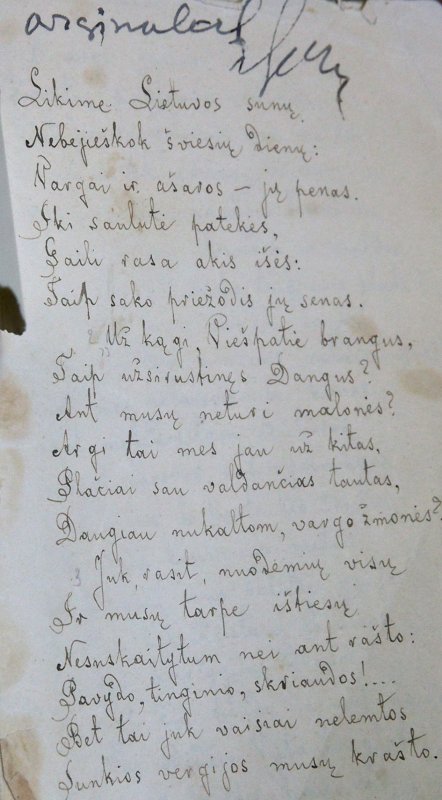 orginalas
Likime Lietuvos sunų
Nebejieškok šviesių dienų:
Vargai ir ašaros – jų penas.
Iki saulutė patekės,
Gaili rasa akis išės:
Taip sako priežodis jų senas.
„Už ką gi, Viešpatie brangus,
Taip užsirustinęs Dangus?
Ant musų neturi malonės?
Argi tai mes jau už kitas,
Plačiai sau valdančias tautas,
Daugiau nukaltom, vargo žmonės?
Juk, rasit, nuodėmių visų
Ir musų tarpe ištiesų
Nesuskaitytum nei ant rašto:
Pavydo, tinginio, skriaudos!....
Bet tai juk vaisiai nelemtos
Sunkios vergijos musų krašto.